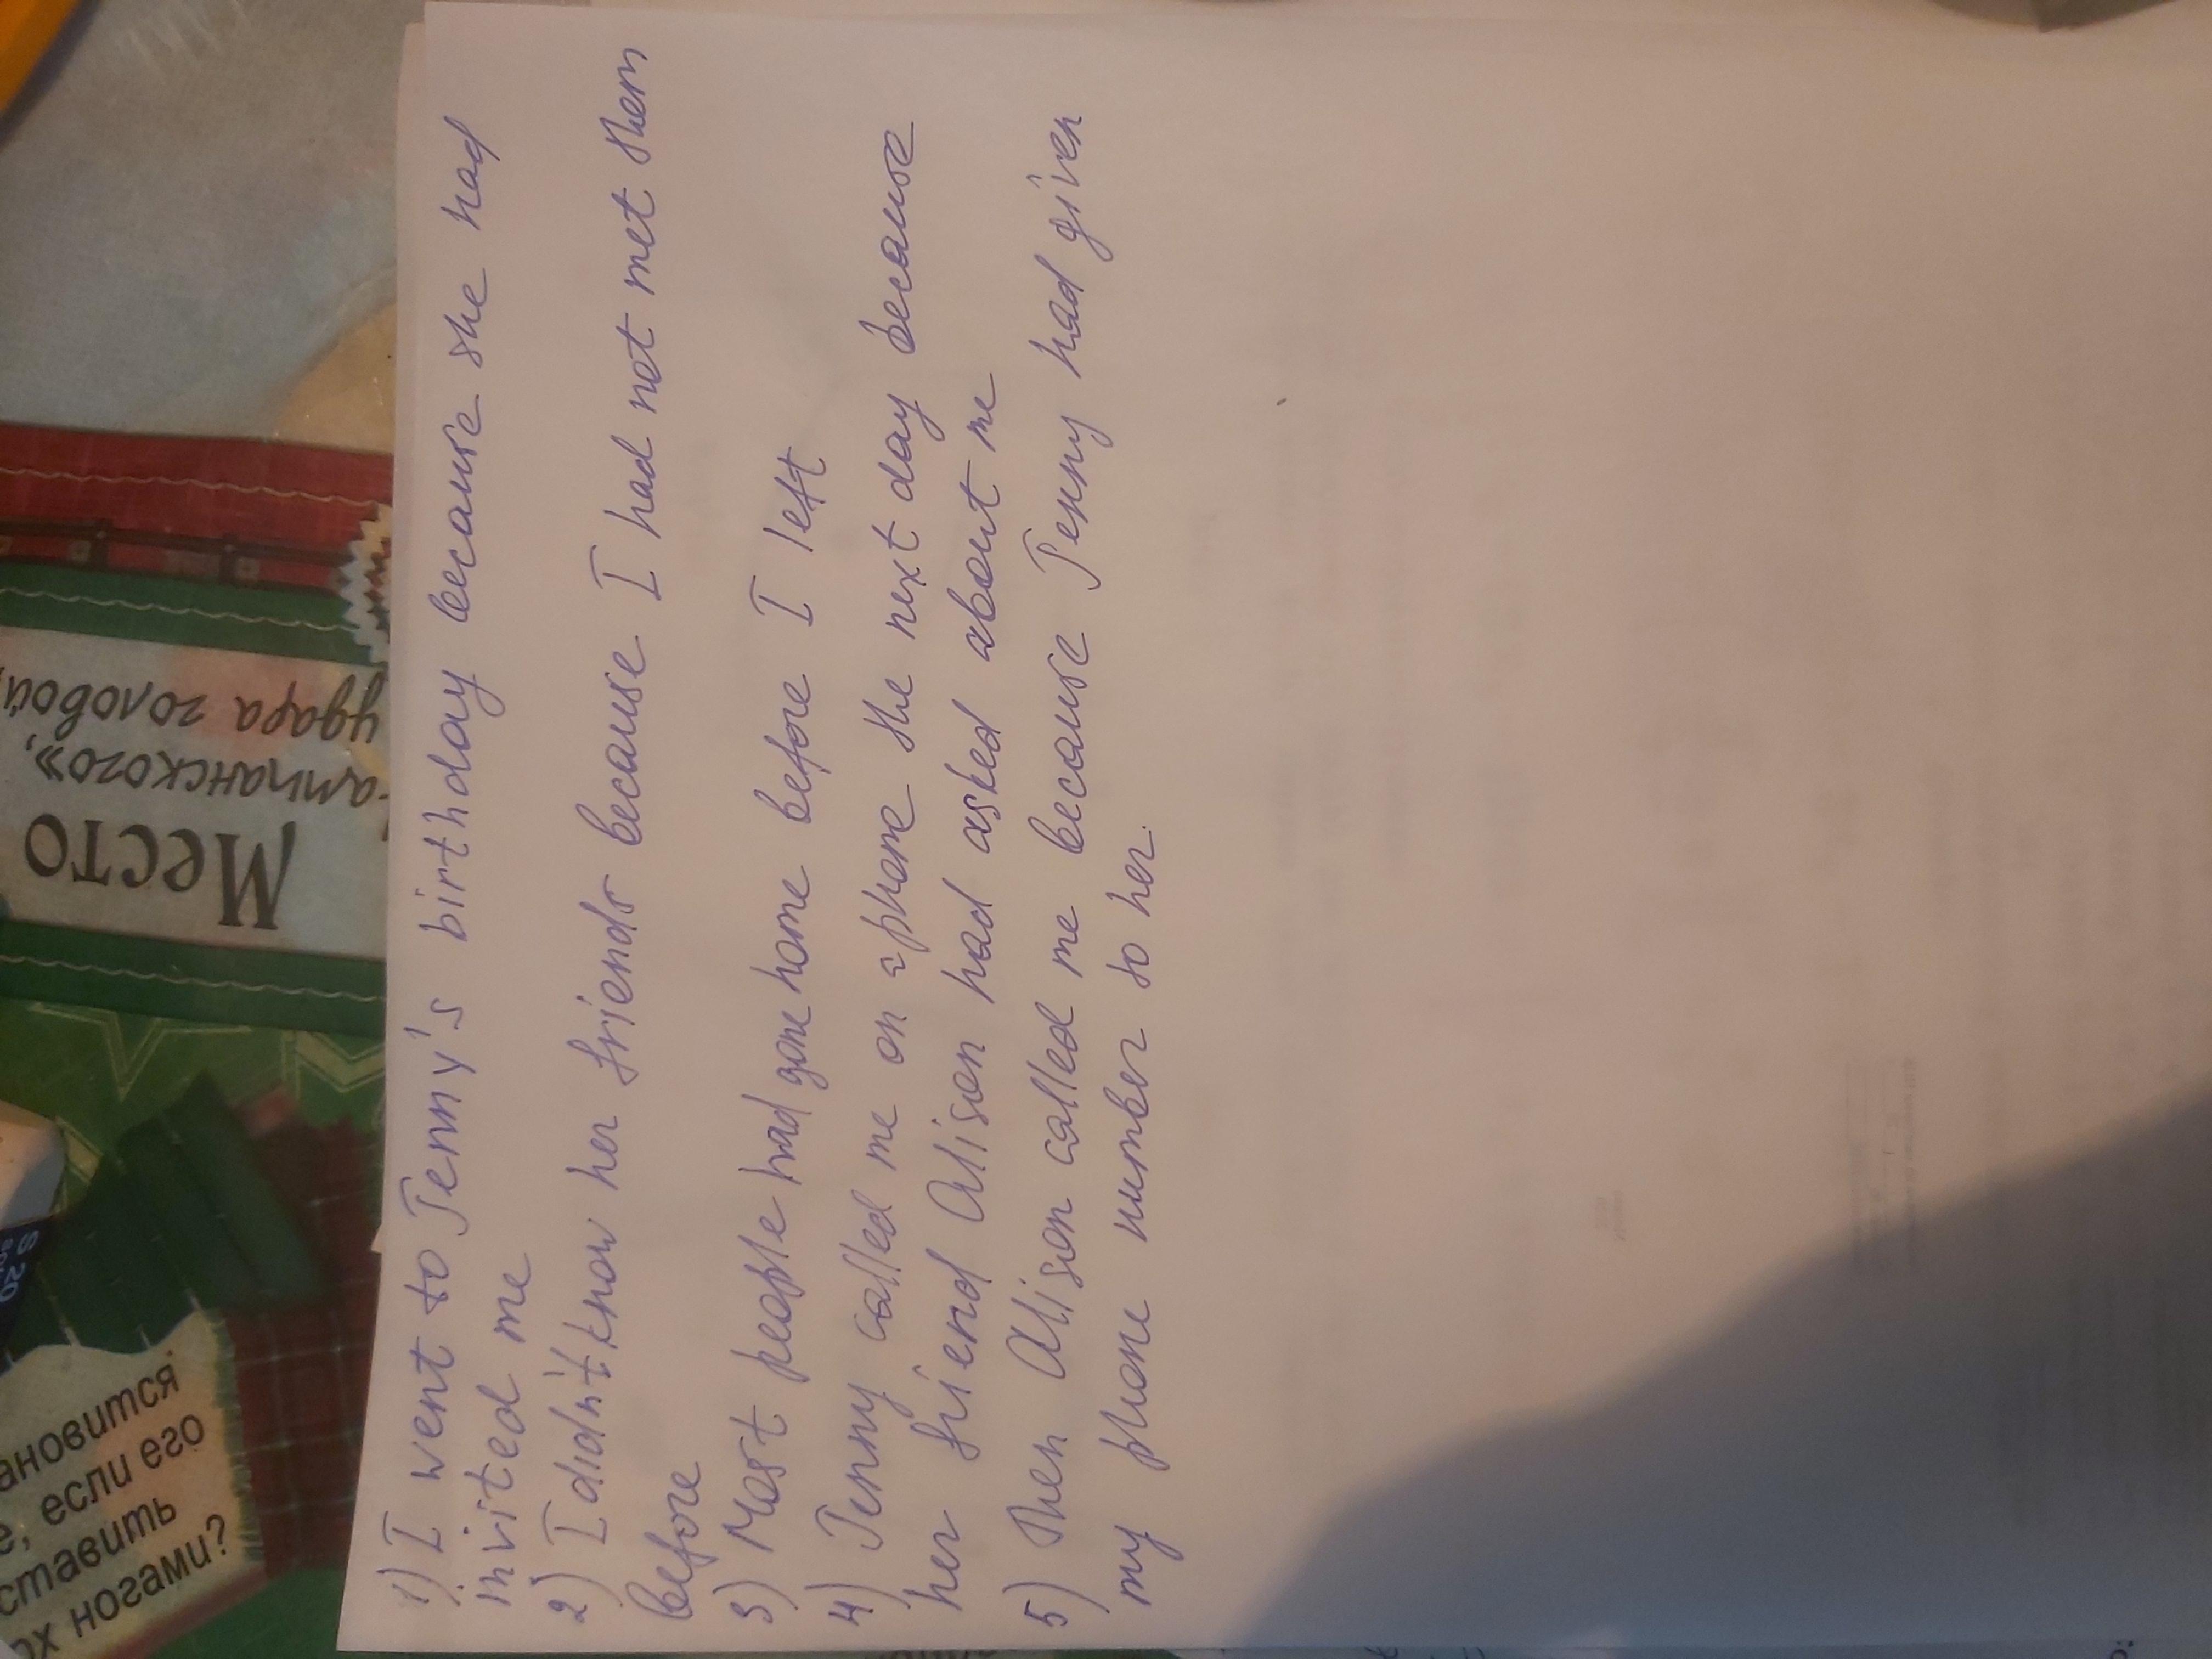 1) I went to Jenny's birthday because she had
invited me
2) I didn't know her friends because I had not met them
before
3) Most people had gone home before I left
4) Jenny called me on a phone the next day because
her friend Alison had asked about me
5) Then Alison called me because Jenny had given
my phone number to her.
Место
ампанского»,
удара головой,
ановится
е, если его
ставить
рх ногами?
S 20